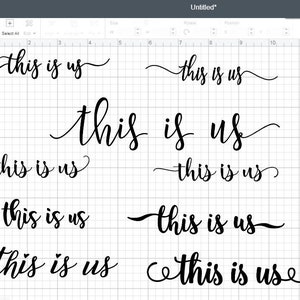 Untitled*
Select All
Size
2 3 4 5 6 7 8 9 10
this is us
this is us
this is us
this is us
this is us
this is us
this is us
this is us
this is us